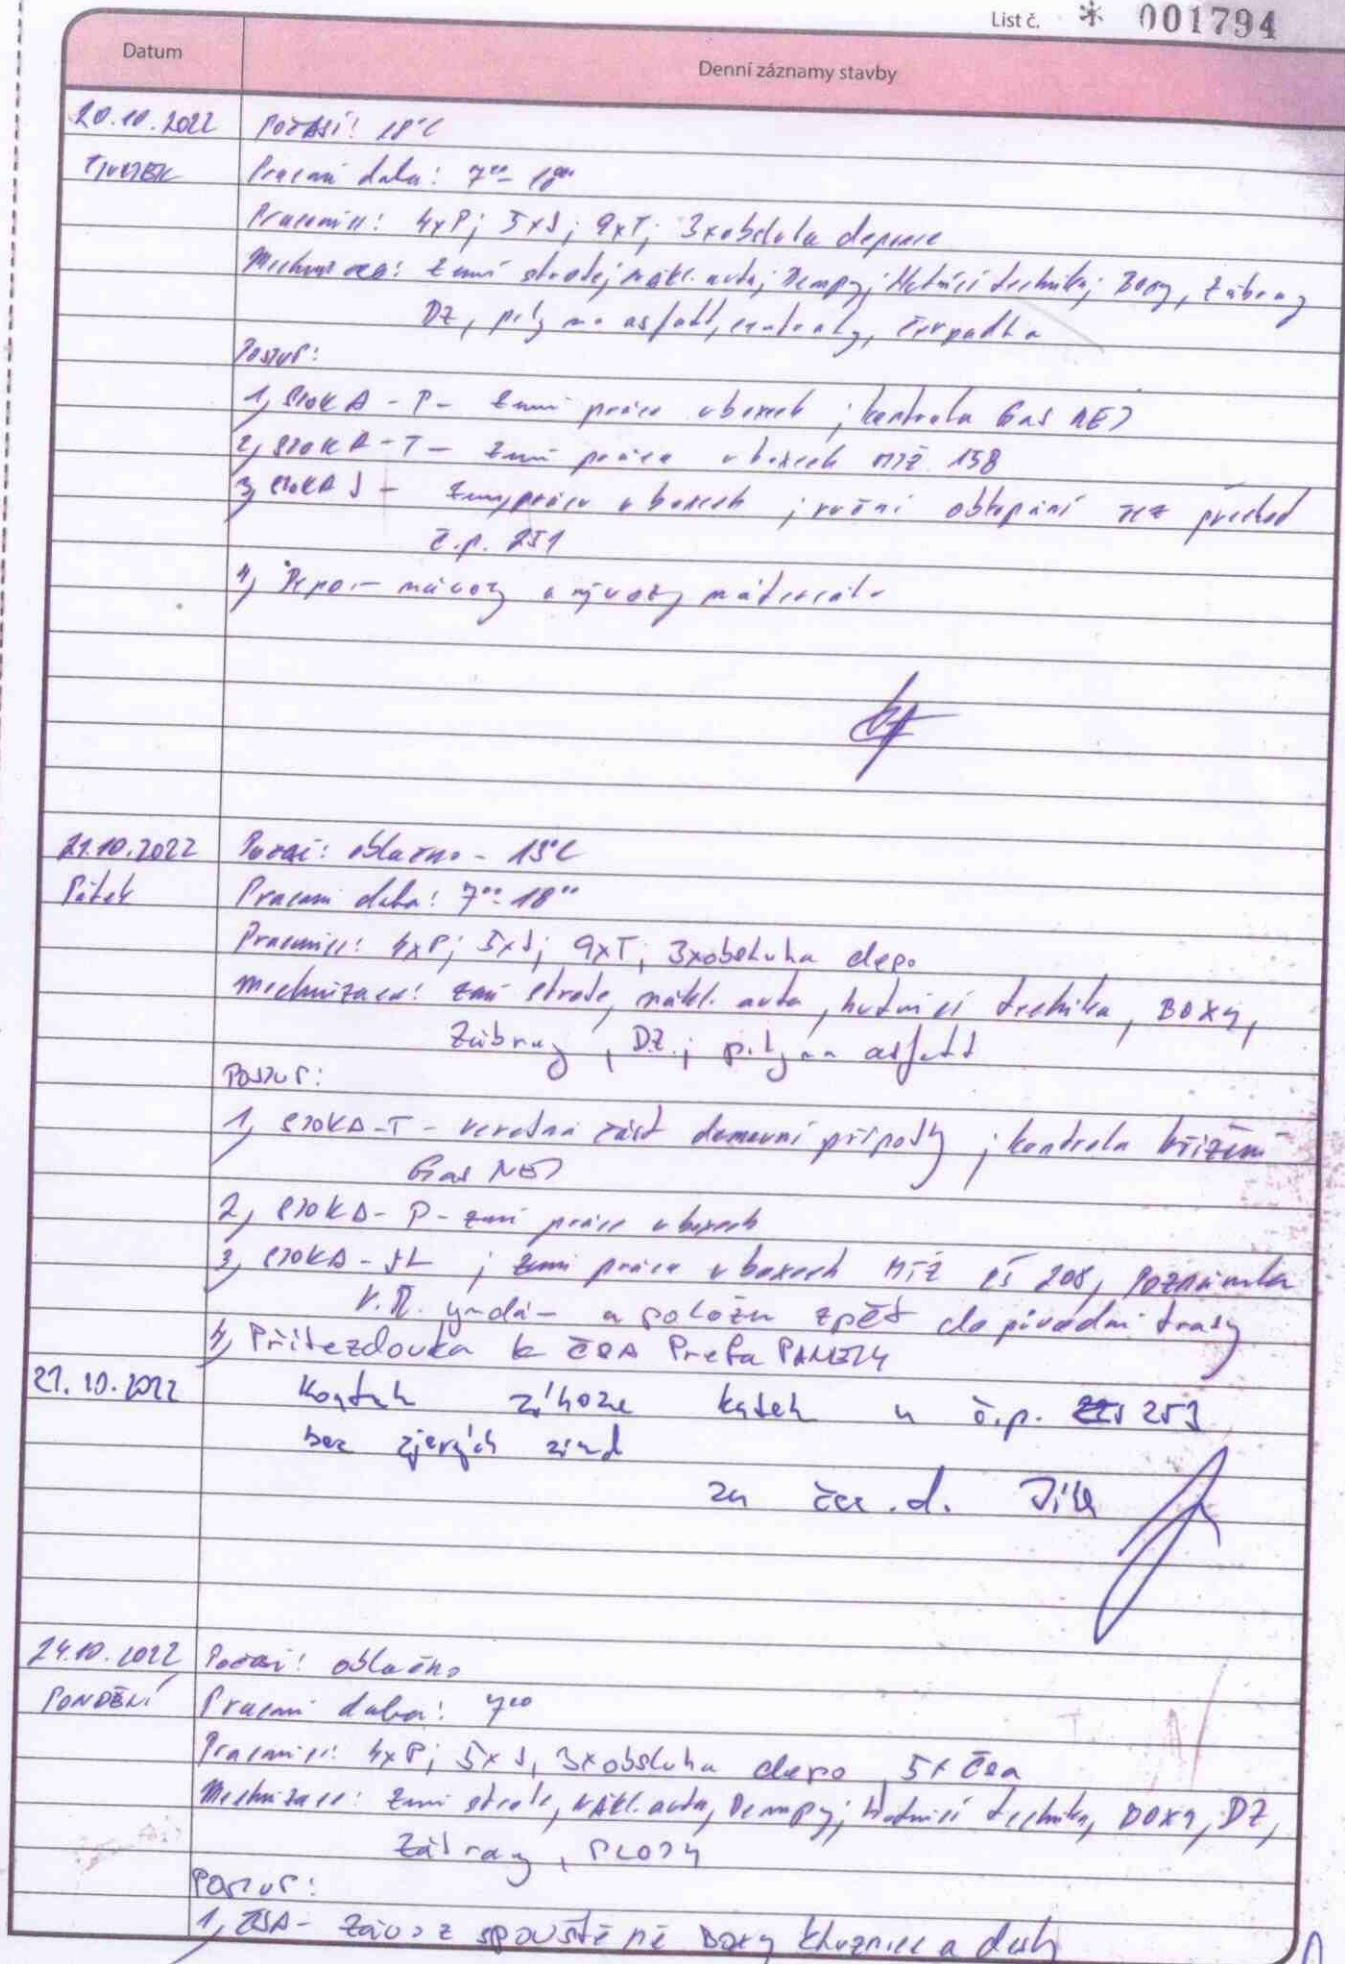 List č. * 001794
Datum
Denní záznamy stavby
20.10.2022 Počasí: 18°C
Pracovní doba: 7⁰⁰ - 18⁰⁰
Pracovníci: 4xP; 5xJ; 9xT; 3xobsluha
Mechanizace: Zemní stroje; nákl. auta; Dempy; Hutnící technika; Boxy, Zábrany
DZ, pily na asfalt, čerpadla
Postup:
1, STOKA - P - Zemní práce v boxech; kontrola Gas NET
2, STOKA - T - Zemní práce v boxech 158
3, STOKA J - Zemní práce v boxech; ruční obkopání přechod
č.p. 251
4, Depo - návozy a vývozy materiálu
21.10.2022 Počasí: oblačno - 15°C
Pátek Pracovní doba: 7⁰⁰ - 18⁰⁰
Pracovníci: 4xP; 5xJ; 9xT; 3xobsluha depo
Mechanizace: zemní stroje, nákl. auta, hutnící technika, BOXY,
Zábrany, DZ.; pily na asfalt
Postup:
1, STOKA-T - část domovní přípojky; kontrola křížení
Gas NET
2, STOKA - P - zemní práce v boxech
3, STOKA - ; zemní práce v boxech 208, Poznámka
a položen zpět do původní trasy
4, Příjezdovka k ČSA Prefa PANELY
21.10.2022 u č.p. 253
bez závad
za
24.10.2022 Počasí: oblačno
PONDĚLÍ Pracovní doba: 7⁰⁰
Pracovníci: 4xP; 5xJ, 3xobsluha depo, 5x ČSA
Mechanizace: Zemní stroje, nákl. auta, Dempy; Hutnící technika, BOXY, DZ,
Zábrany, PLOTY
Postup:
1, ČSA - Závoz spouštěné Boxy a desky